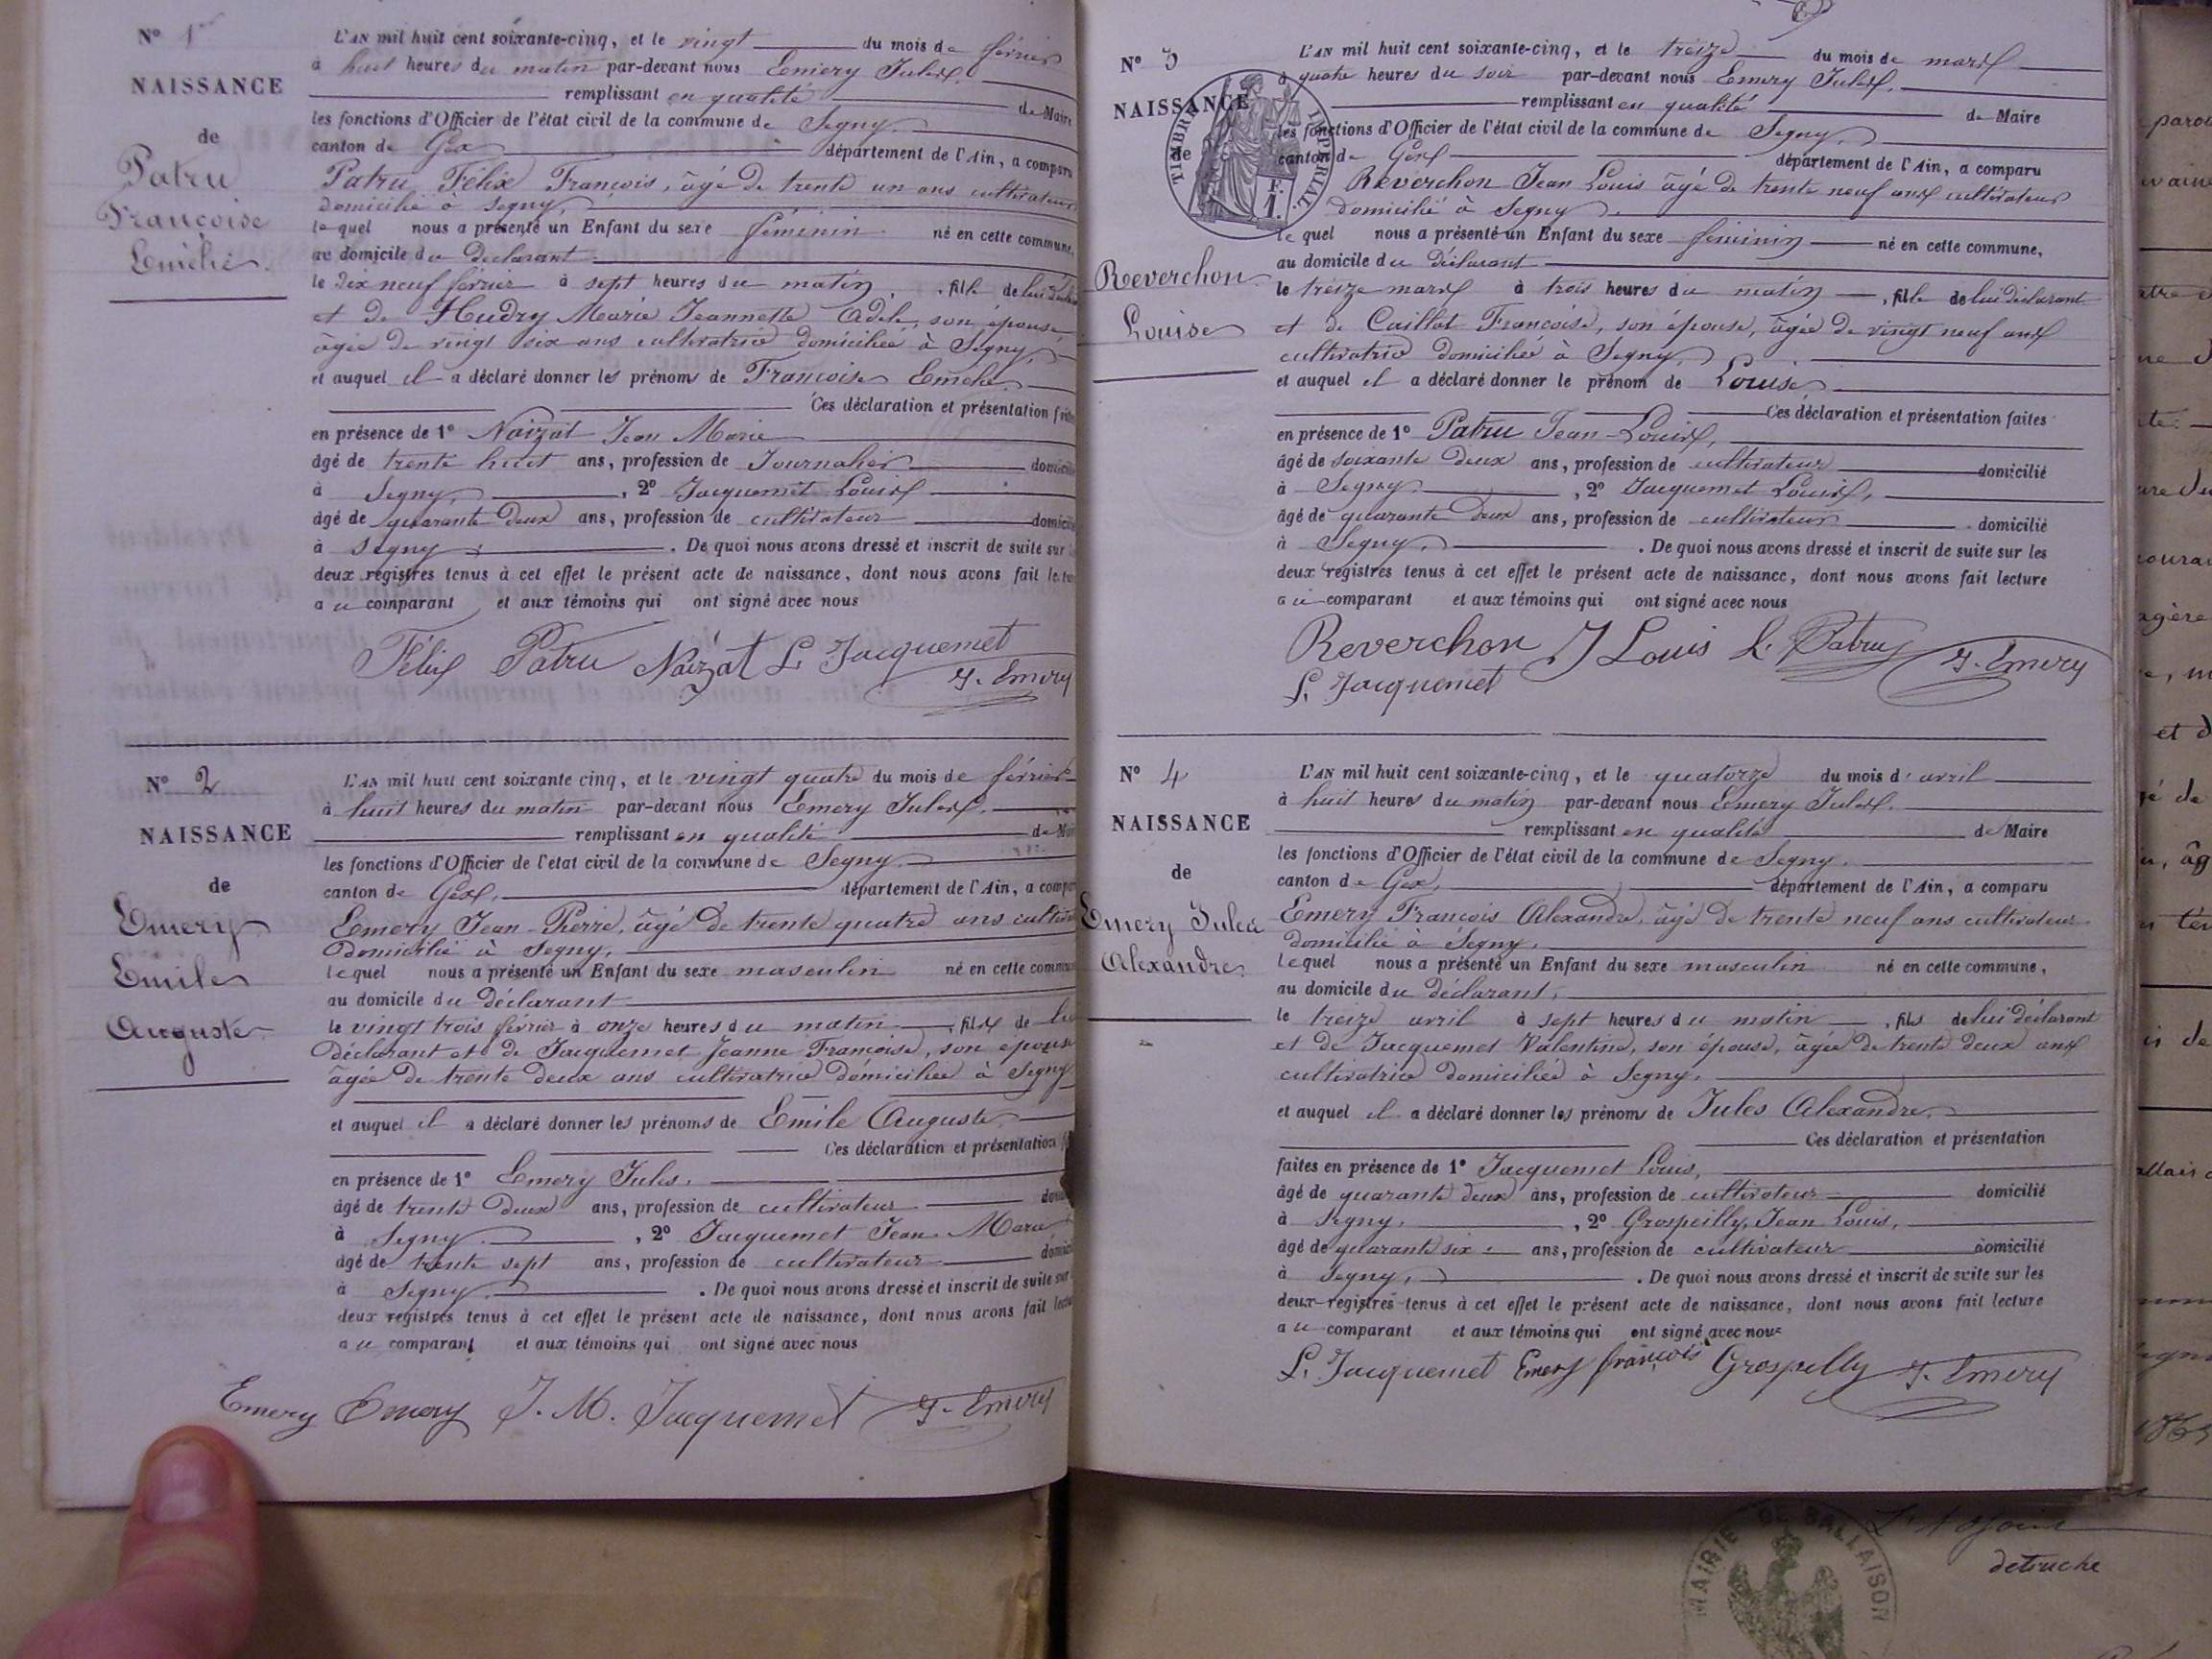 N° 1er
NAISSANCE
de
Patru
Françoise
L'AN mil huit cent soixante-cinq, et le vingt du mois de février
à huit heures du matin par-devant nous Emery Jules,
remplissant en qualité de Maire
les fonctions d'Officier de l'état civil de la commune de Segny,
canton de Gex département de l'Ain, a comparu
Patru Félix François, âgé de trente un ans cultivateur
domicilié à Segny,
lequel nous a présenté un Enfant du sexe féminin né en cette commune,
au domicile du déclarant
le dix neuf février à sept heures du matin, fille de lui
et de Hudry Marie Jeannette Adele, son épouse
âgée de vingt six ans cultivatrice domiciliée à Segny,
et auquel il a déclaré donner les prénoms de Françoise
Ces déclaration et présentation
en présence de 1° Naizat Jean Marie
âgé de trente huit ans, profession de Journalier
à Segny, , 2° Jacquemet Louis
âgé de quarante deux ans, profession de cultivateur
à Segny . De quoi nous avons dressé et inscrit de suite sur
deux registres tenus à cet effet le présent acte de naissance, dont nous avons fait
au comparant et aux témoins qui ont signé avec nous
Félix Patru Naizat L. Jacquemet
J. Emery
N° 2
NAISSANCE
de
Emery
Emile
Auguste
L'AN mil huit cent soixante cinq, et le vingt quatre du mois de février
à huit heures du matin par-devant nous Emery Jules,
remplissant en qualité de
les fonctions d'Officier de l'état civil de la commune de Segny.
canton de Gex, département de l'Ain, a
Emery Jean-Pierre, âgé de trente quatre ans
domicilié à Segny,
lequel nous a présenté un Enfant du sexe masculin né en cette
au domicile du déclarant
le vingt trois février à onze heures du matin, fils de lui
déclarant et de Jacquemet Jeanne Françoise, son épouse
âgée de trente deux ans cultivatrice domiciliée à Segny
et auquel il a déclaré donner les prénoms de Emile Auguste
Ces déclaration et présentation
en présence de 1° Emery Jules,
âgé de trente deux ans, profession de cultivateur
à Segny , 2° Jacquemet Jean Marie
âgé de trente sept ans, profession de cultivateur
à Segny . De quoi nous avons dressé et inscrit de suite sur
deux registres tenus à cet effet le présent acte de naissance, dont nous avons fait
au comparant et aux témoins qui ont signé avec nous
Emery Emery J. M. Jacquemet J. Emery
N° 3
NAISSANCE
de
TIMBRE IMPERIAL
Reverchon
Louise
L'AN mil huit cent soixante-cinq, et le treize du mois de mars
à quatre heures du soir par-devant nous Emery Jules,
remplissant en qualité de Maire
les fonctions d'Officier de l'état civil de la commune de Segny,
canton de Gex département de l'Ain, a comparu
Reverchon Jean Louis âgé de trente neuf ans cultivateur
domicilié à Segny
lequel nous a présenté un Enfant du sexe féminin né en cette commune,
au domicile du déclarant
le treize mars à trois heures du matin, fille de lui déclarant
et de Caillat Françoise, son épouse, âgée de vingt neuf ans
cultivatrice domiciliée à Segny,
et auquel il a déclaré donner le prénom de Louise
Ces déclaration et présentation faites
en présence de 1° Patru Jean-Louis,
âgé de soixante deux ans, profession de cultivateur domicilié
à Segny , 2° Jacquemet Louis,
âgé de quarante deux ans, profession de cultivateur domicilié
à Segny, . De quoi nous avons dressé et inscrit de suite sur les
deux registres tenus à cet effet le présent acte de naissance, dont nous avons fait lecture
au comparant et aux témoins qui ont signé avec nous
Reverchon J Louis L. Patru J. Emery
L. Jacquemet
N° 4
NAISSANCE
de
Emery Jules
Alexandre
L'AN mil huit cent soixante-cinq, et le quatorze du mois d'avril
à huit heures du matin par-devant nous Emery Jules,
remplissant en qualité de Maire
les fonctions d'Officier de l'état civil de la commune de Segny.
canton de Gex, département de l'Ain, a comparu
Emery François Alexandre, âgé de trente neuf ans cultivateur
domicilié à Segny,
lequel nous a présenté un Enfant du sexe masculin né en cette commune,
au domicile du déclarant,
le treize avril à sept heures du matin, fils de lui déclarant
et de Jacquemet Valentine, son épouse, âgée de trente deux ans
cultivatrice domiciliée à Segny,
et auquel il a déclaré donner les prénoms de Jules Alexandre,
Ces déclaration et présentation
faites en présence de 1° Jacquemet Louis,
âgé de quarante deux ans, profession de cultivateur domicilié
à Segny. , 2° Grospeilly, Jean Louis,
âgé de quarante six ans, profession de cultivateur domicilié
à Segny, . De quoi nous avons dressé et inscrit de suite sur les
deux registres tenus à cet effet le présent acte de naissance, dont nous avons fait lecture
au comparant et aux témoins qui ont signé avec nous
L. Jacquemet Emery françois Grospelly J. Emery
MAIRIE DE BALLAISON